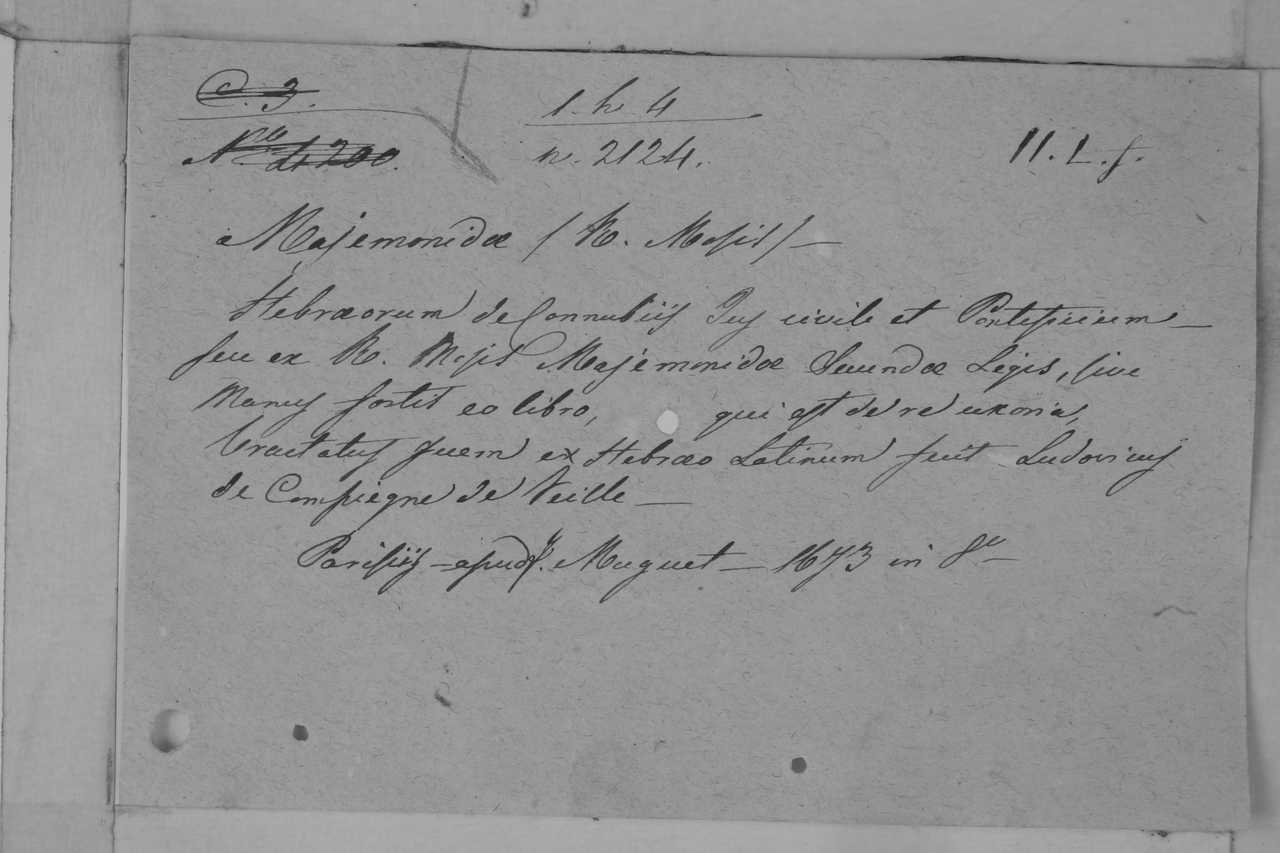 C. 3.
1. h 4
N.ro di 200.
n. 2124.
11. L. f.
a Majemonidæ (R. Mosis) —
Hebræorum de Connubiis Jus civile et Pontificium —
seu ex R. Mosis Majemonidæ Secundæ Legis, sive
Manus fortis eo libro, qui est de re uxoria,
tractatus quem ex Hebræo Latinum fecit Ludovicus
de Compiegne de Veille —
Parisiis — apud F. Muguet — 1673 in 8.º —